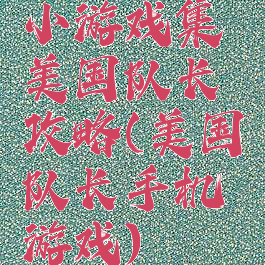 小游戏集
美国队长
攻略(美国
队长手机
游戏)